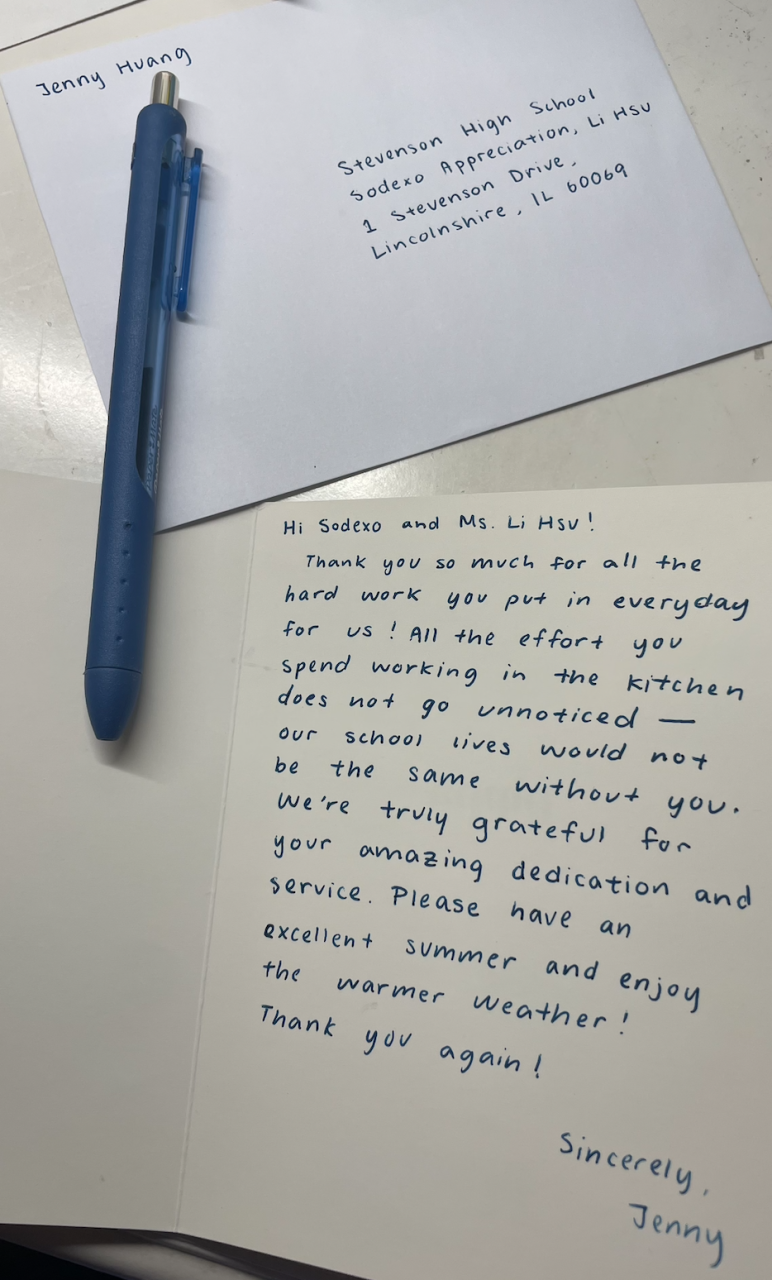 Jenny Huang
Stevenson High School
Sodexo Appreciation, Li Hsu
1 Stevenson Drive,
Lincolnshire, IL 60069
Hi Sodexo and Ms. Li Hsu!
Thank you so much for all the
hard work you put in everyday
for us! All the effort you
spend working in the kitchen
does not go unnoticed —
our school lives would not
be the same without you.
We're truly grateful for
your amazing dedication and
service. Please have an
excellent summer and enjoy
the warmer weather!
Thank you again!
Sincerely,
Jenny